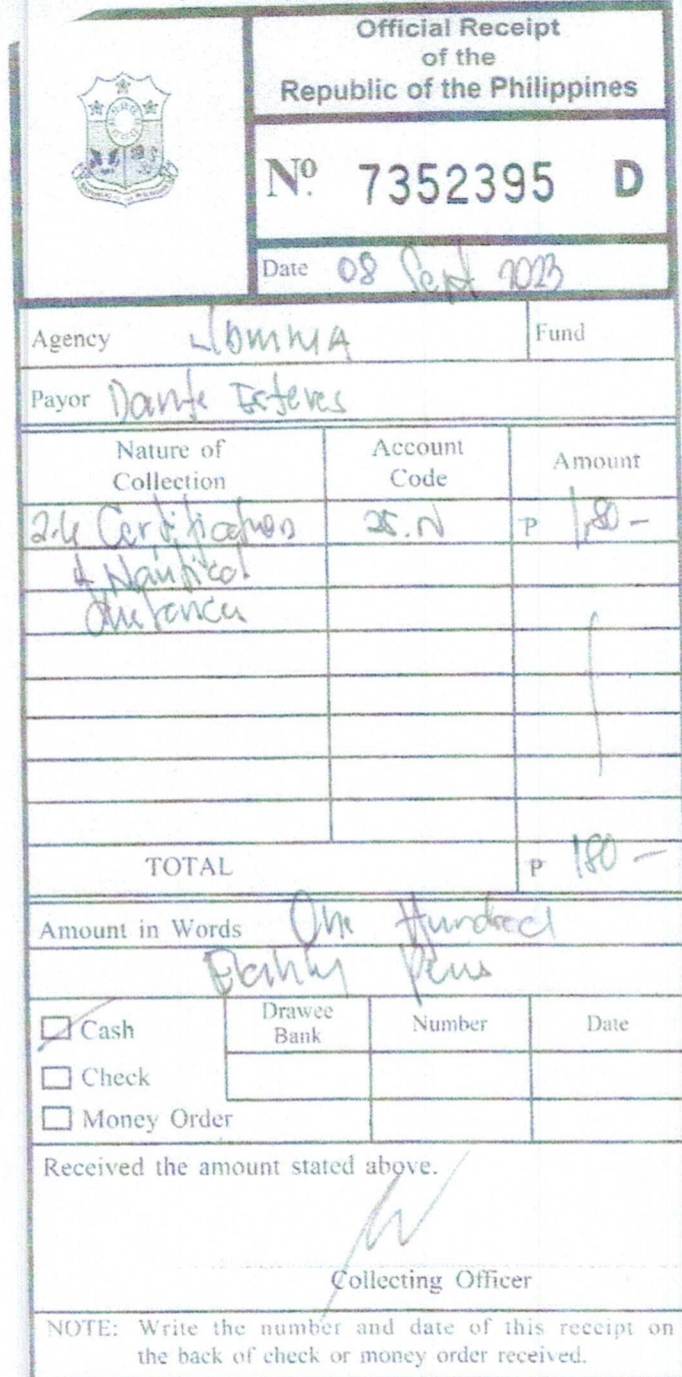 Official Receipt
of the
Republic of the Philippines
Nº. 7352395 D
Date 08 Sept 2023
Agency
Fund
Payor Dante Esteves
Nature of Collection
Account Code
Amount
Certification
P 180 -
of Nautical
TOTAL P 180 —
Amount in Words One Hundred
Eighty Pesos
Cash
Drawee Bank
Number
Date
Check
Money Order
Received the amount stated above.
Collecting Officer
NOTE: Write the number and date of this receipt on
the back of check or money order received.